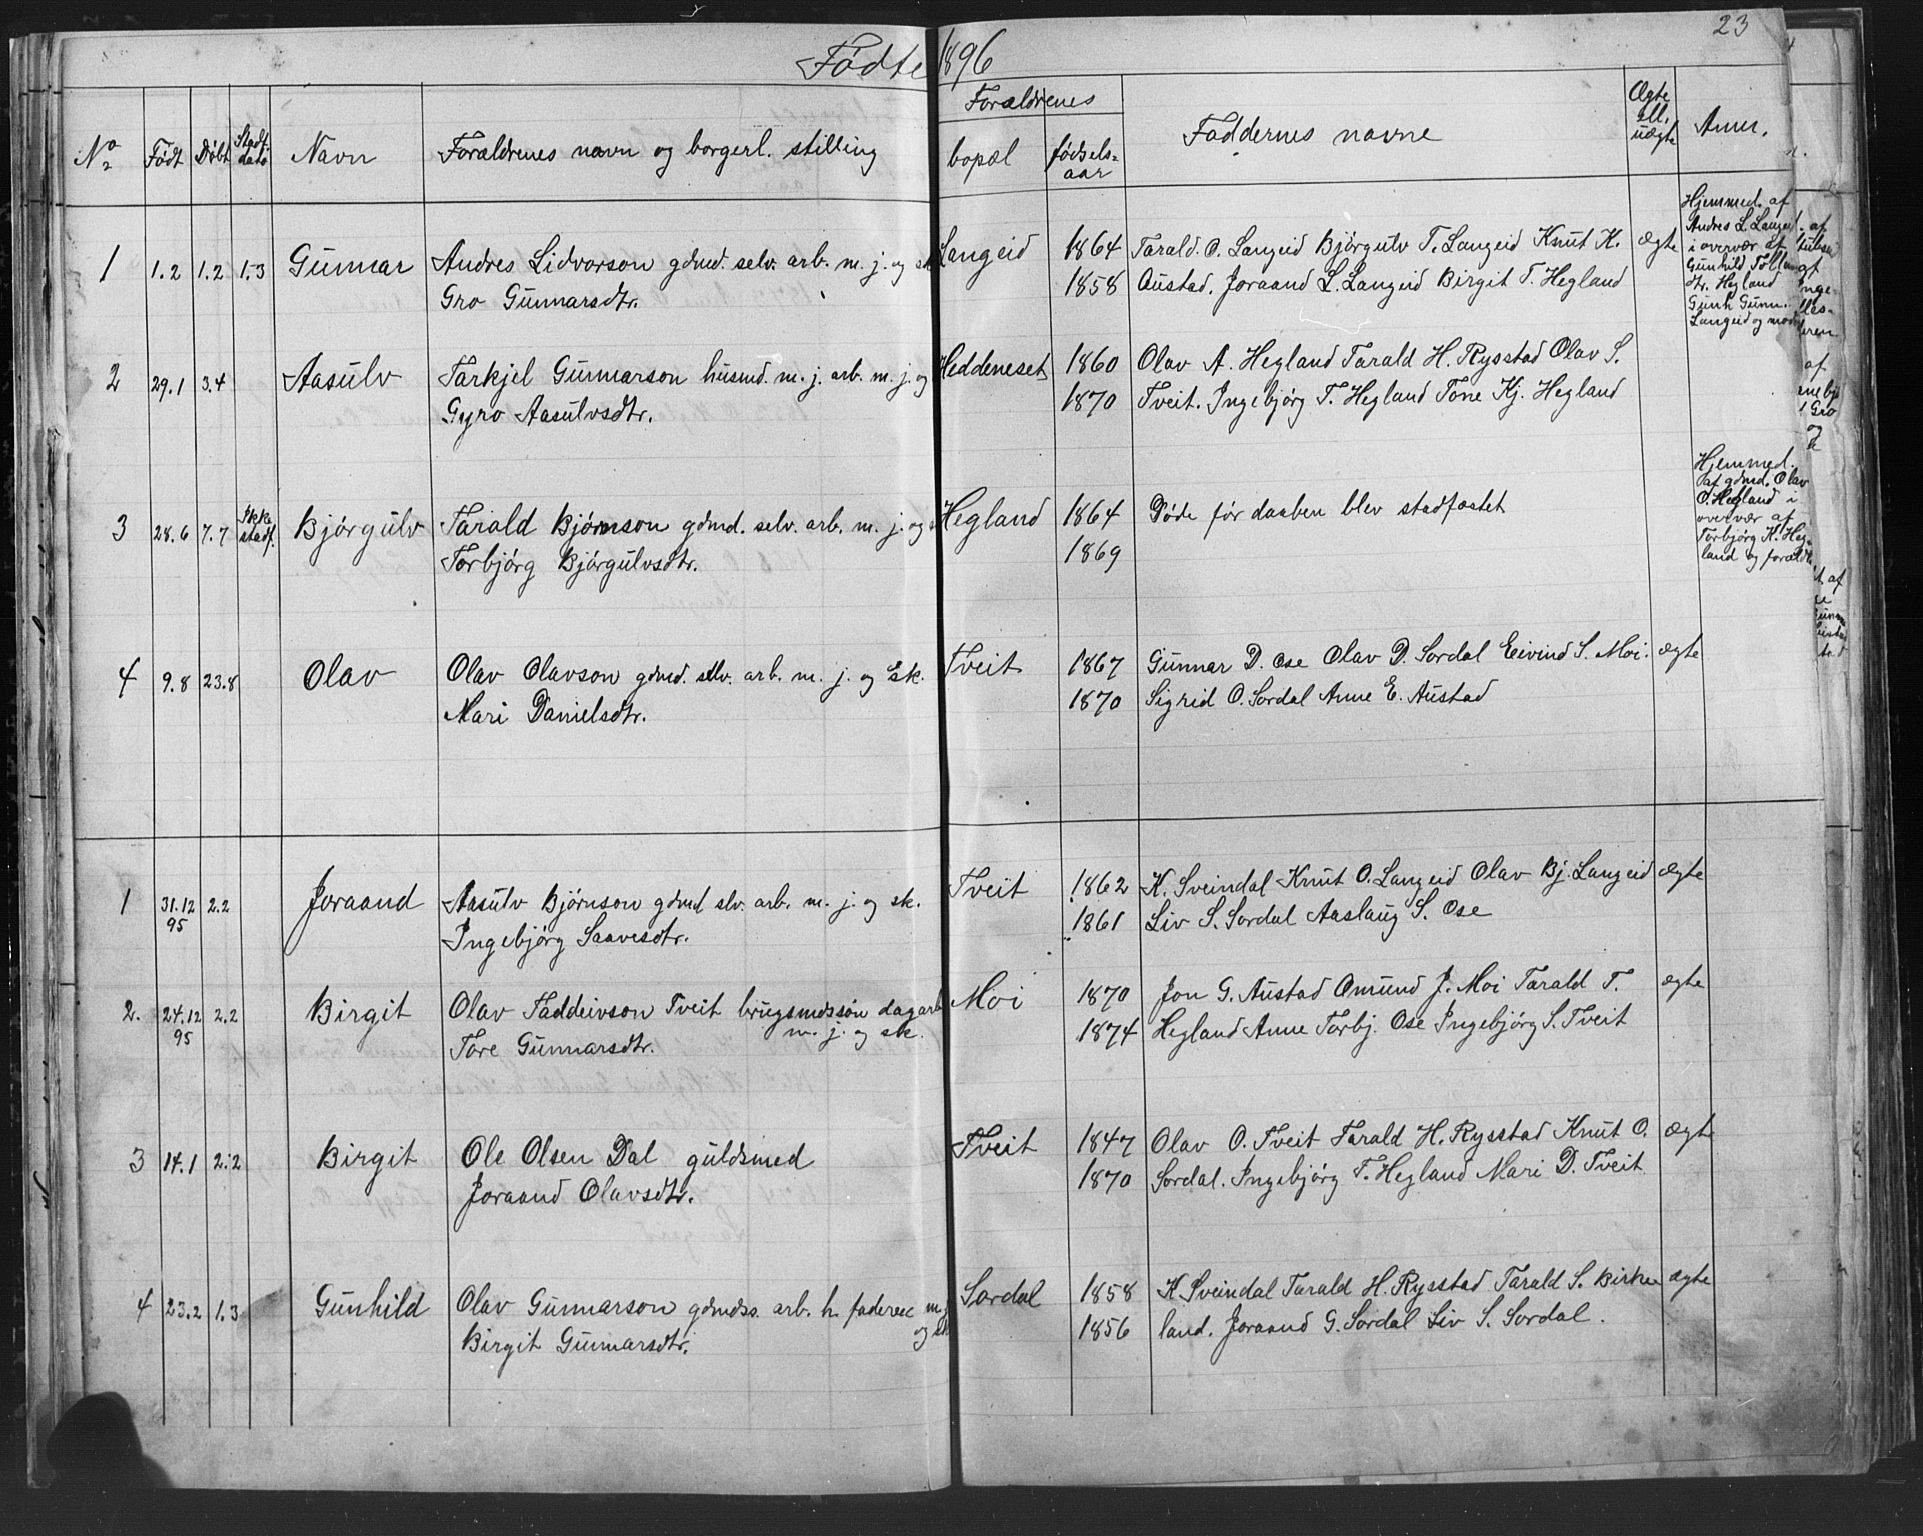 23
Fødte 1896
Forældrenes
Ægte
ell.
uægte
No Født Døbt Stadf. dato Navn Forældrenes navn og borgerl. stilling bopæl fødsels-
aar
Faddernes navne
Anm.
1 1.2 1.2 1.3 Gunnar Andres Lidvorson gdmd. selv. arb. m. j. og Langeid 1864 Tarald. O. Langeid Bjørgulv T. Langeid Knut K. ægte
Gro Gunnarsdtr. 1858 Austad. Joraand L. Langeid Birgit T. Hegland
Hjemmed. af
Andres L. Langeid
i overvær af
Gunhild
dtr. Hegland
Gunh Gunn.
Langeid og
2 29.1 3.4 Aasulv Tarkjel Gunnarson husmd. m. j. arb. m. j. og Heddeneset 1860 Olav A. Hegland Tarald H. Rysstad Olav S.
Gyro Aasulvsdtr. 1870 Tveit. Ingebjørg T. Hegland Tone Kj. Hegland
3 28.6 7.7 Ikke stadf. Bjørgulv Tarald Bjørnson gdmd. selv. arb. m. j. og Hegland 1864 Døde før daaben blev stadfæstet
Torbjørg Bjørgulvsdtr. 1869
Hjemmed.
af gdmd. Olav
O. Hegland i
overvær af
Torbjørg K. Heg-
land og
4 9.8 23.8 Olav Olav Olavson gdmd. selv. arb. m. j. og sk. Tveit 1867 Gunnar D. Ose Olav D. Sordal Eivind S. Moi. ægte
Mari Danielsdtr. 1870 Sigrid O. Sordal Anne E. Austad
1 31.12 2.2 Joraand Aasulv Bjørnson gdmd slv. arb. m. j. og sk. Tveit 1862 K. Sveindal Knut O. Langeid Olav Bj. Langeid ægte
95 Ingebjørg Saavesdtr. 1861 Liv S. Sordal Aaslaug S. Ose
2. 24.12 2.2 Birgit Olav Taddeivson Tveit brugsmdssøn dagarb Moi 1870 Jon G. Austad Omund J. Moi Tarald T. ægte
95 m. j. og sk.
Tore Gunnarsdtr. 1874 Hegland Anne Torbj. Ose Ingebjørg S. Tveit
3 14.1 2.2 Birgit Ole Olsen Dal guldsmed Tveit 1847 Olav O. Tveit Tarald H. Rysstad Knut O. ægte
Joraand Olavsdtr. 1870 Sordal. Ingebjørg T. Hegland Mari D. Tveit
4 23.2 1.3 Gunhild Olav Gunnarson gdmdss. arb. h. faderen m. j. Sordal 1858 K. Sveindal Tarald H. Rysstad Tarald S. Birke ægte
og sk
Birgit Gunnarsdtr. 1856 land. Joraand G. Sordal Liv S. Sordal.